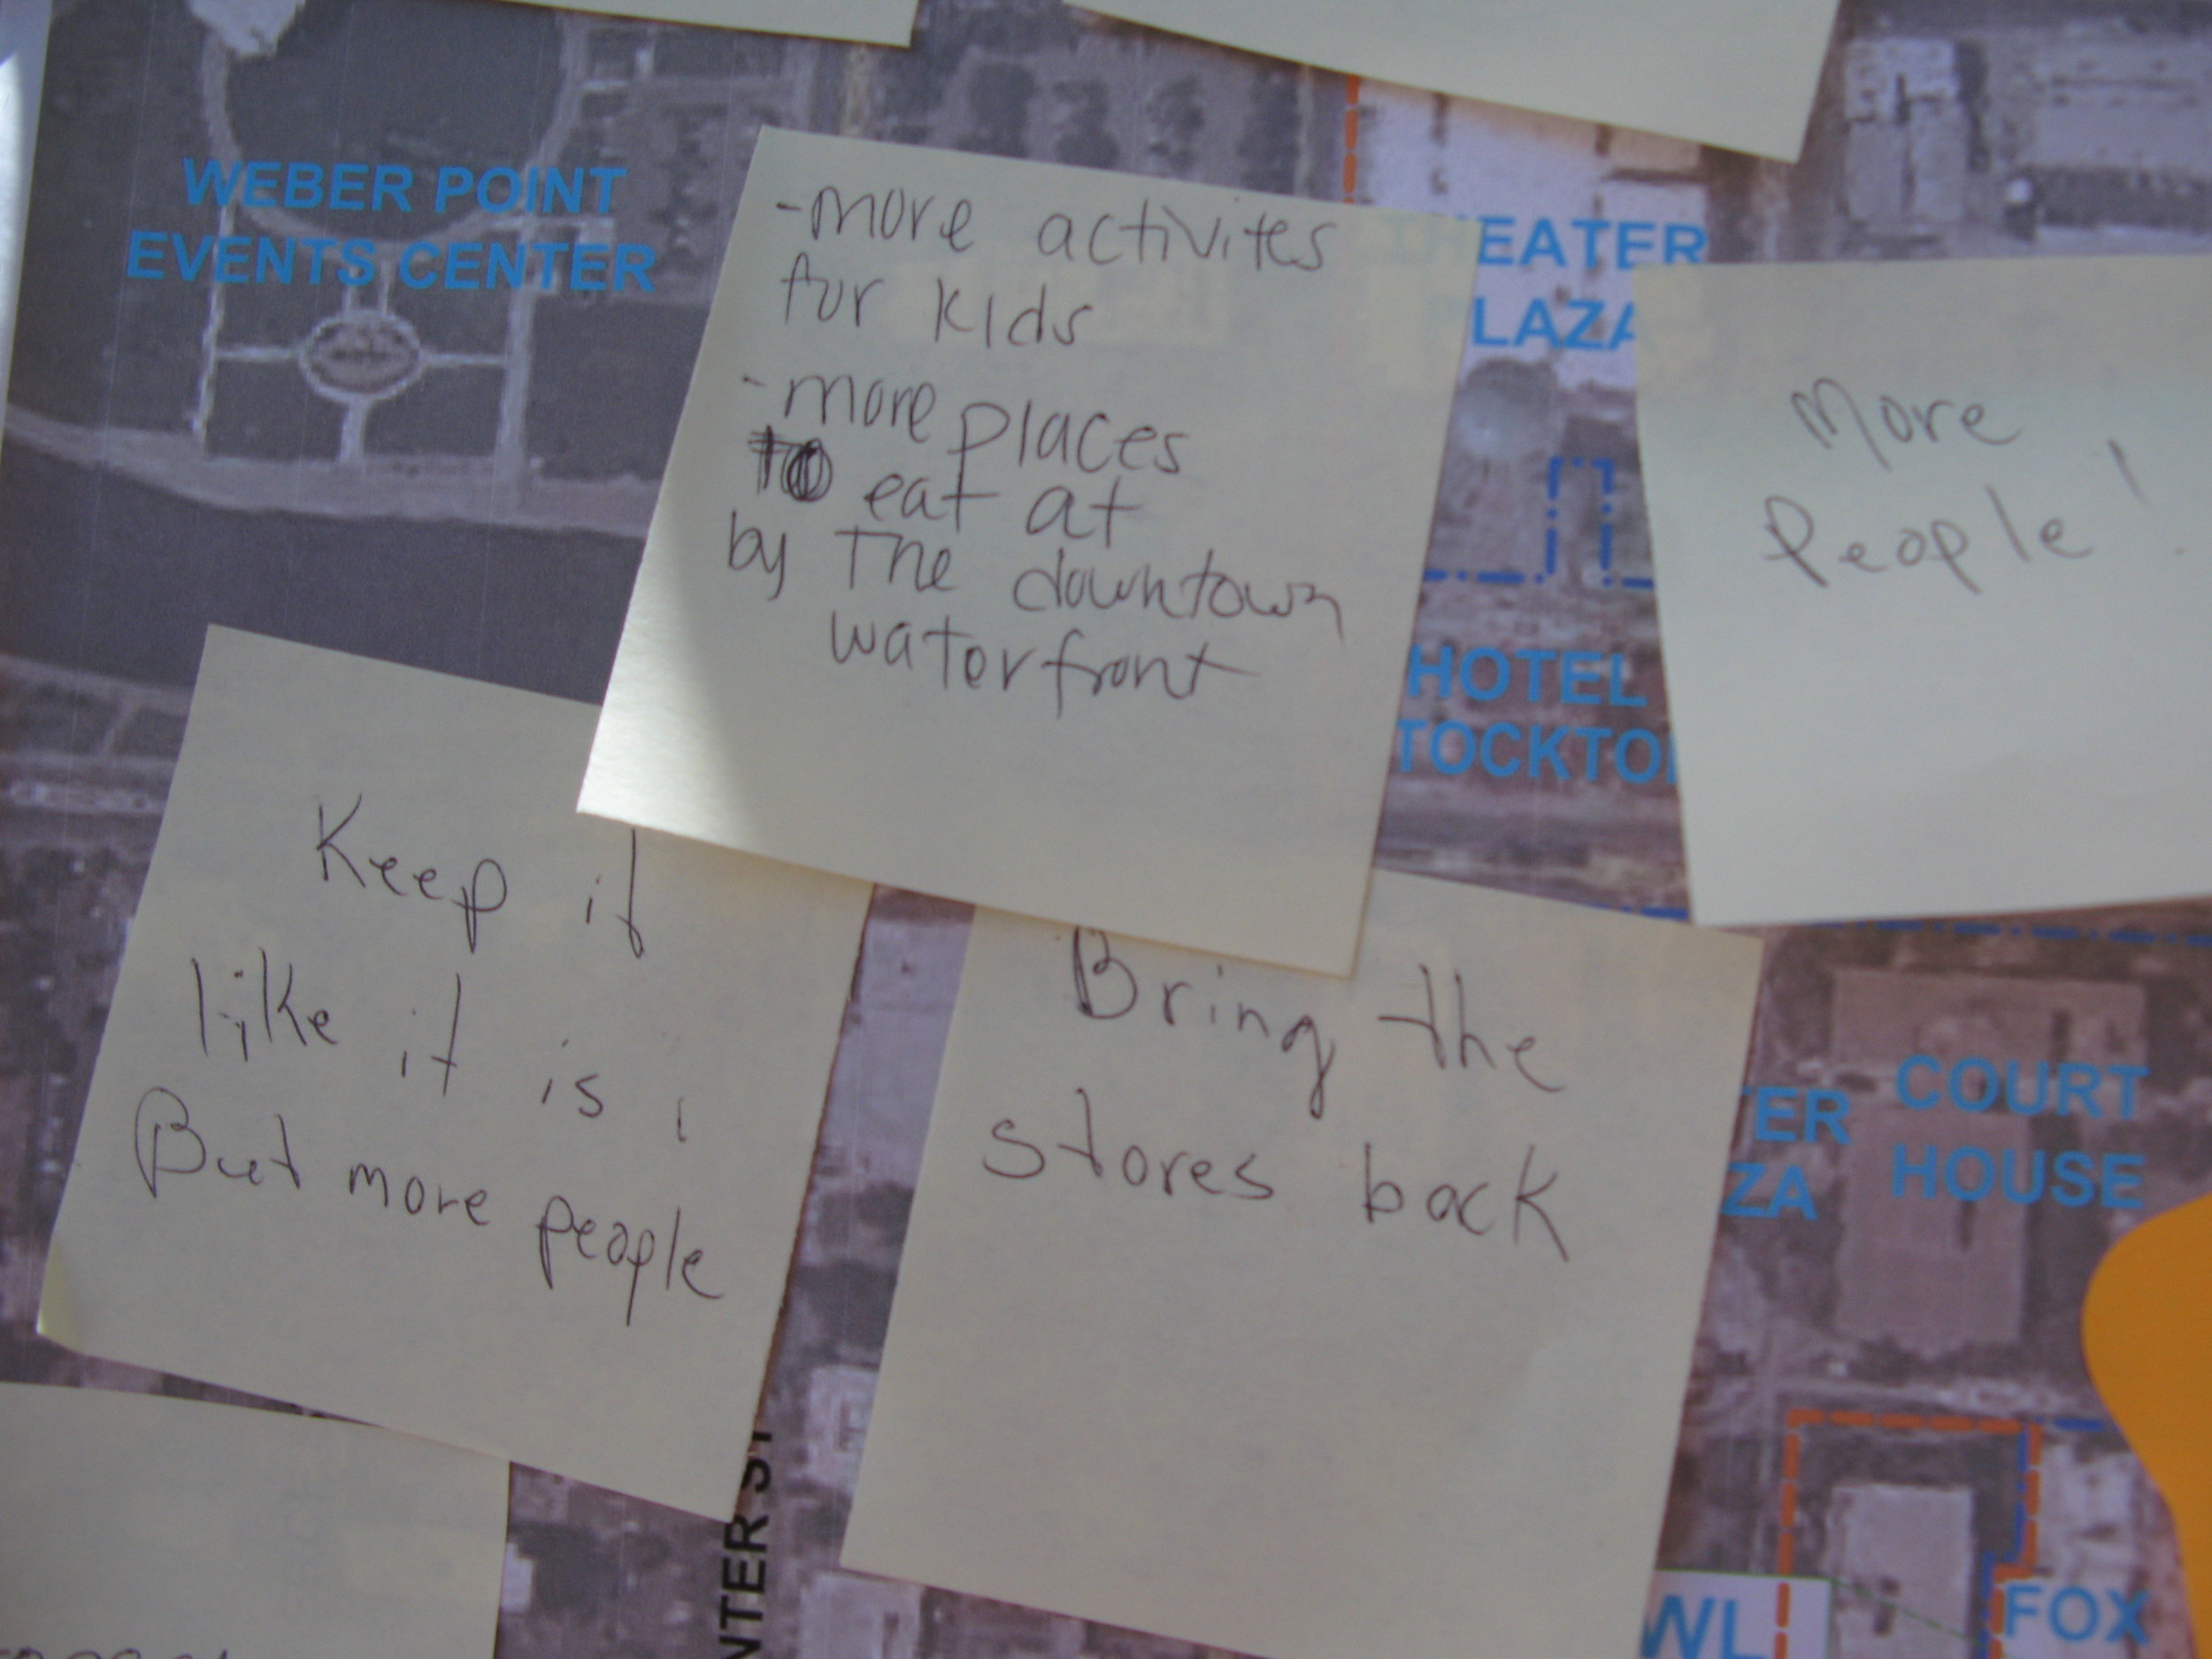 WEBER POINT
EVENTS CENTER
-more activites
for kids
-more places
to eat at
by the downtown
waterfront
THEATER
PLAZA
More
People!
HOTEL
TOCKTO
Keep it
like it is
But more people
Bring the
stores back
TER
ZA
COURT
HOUSE
NTER ST
WL
FOX